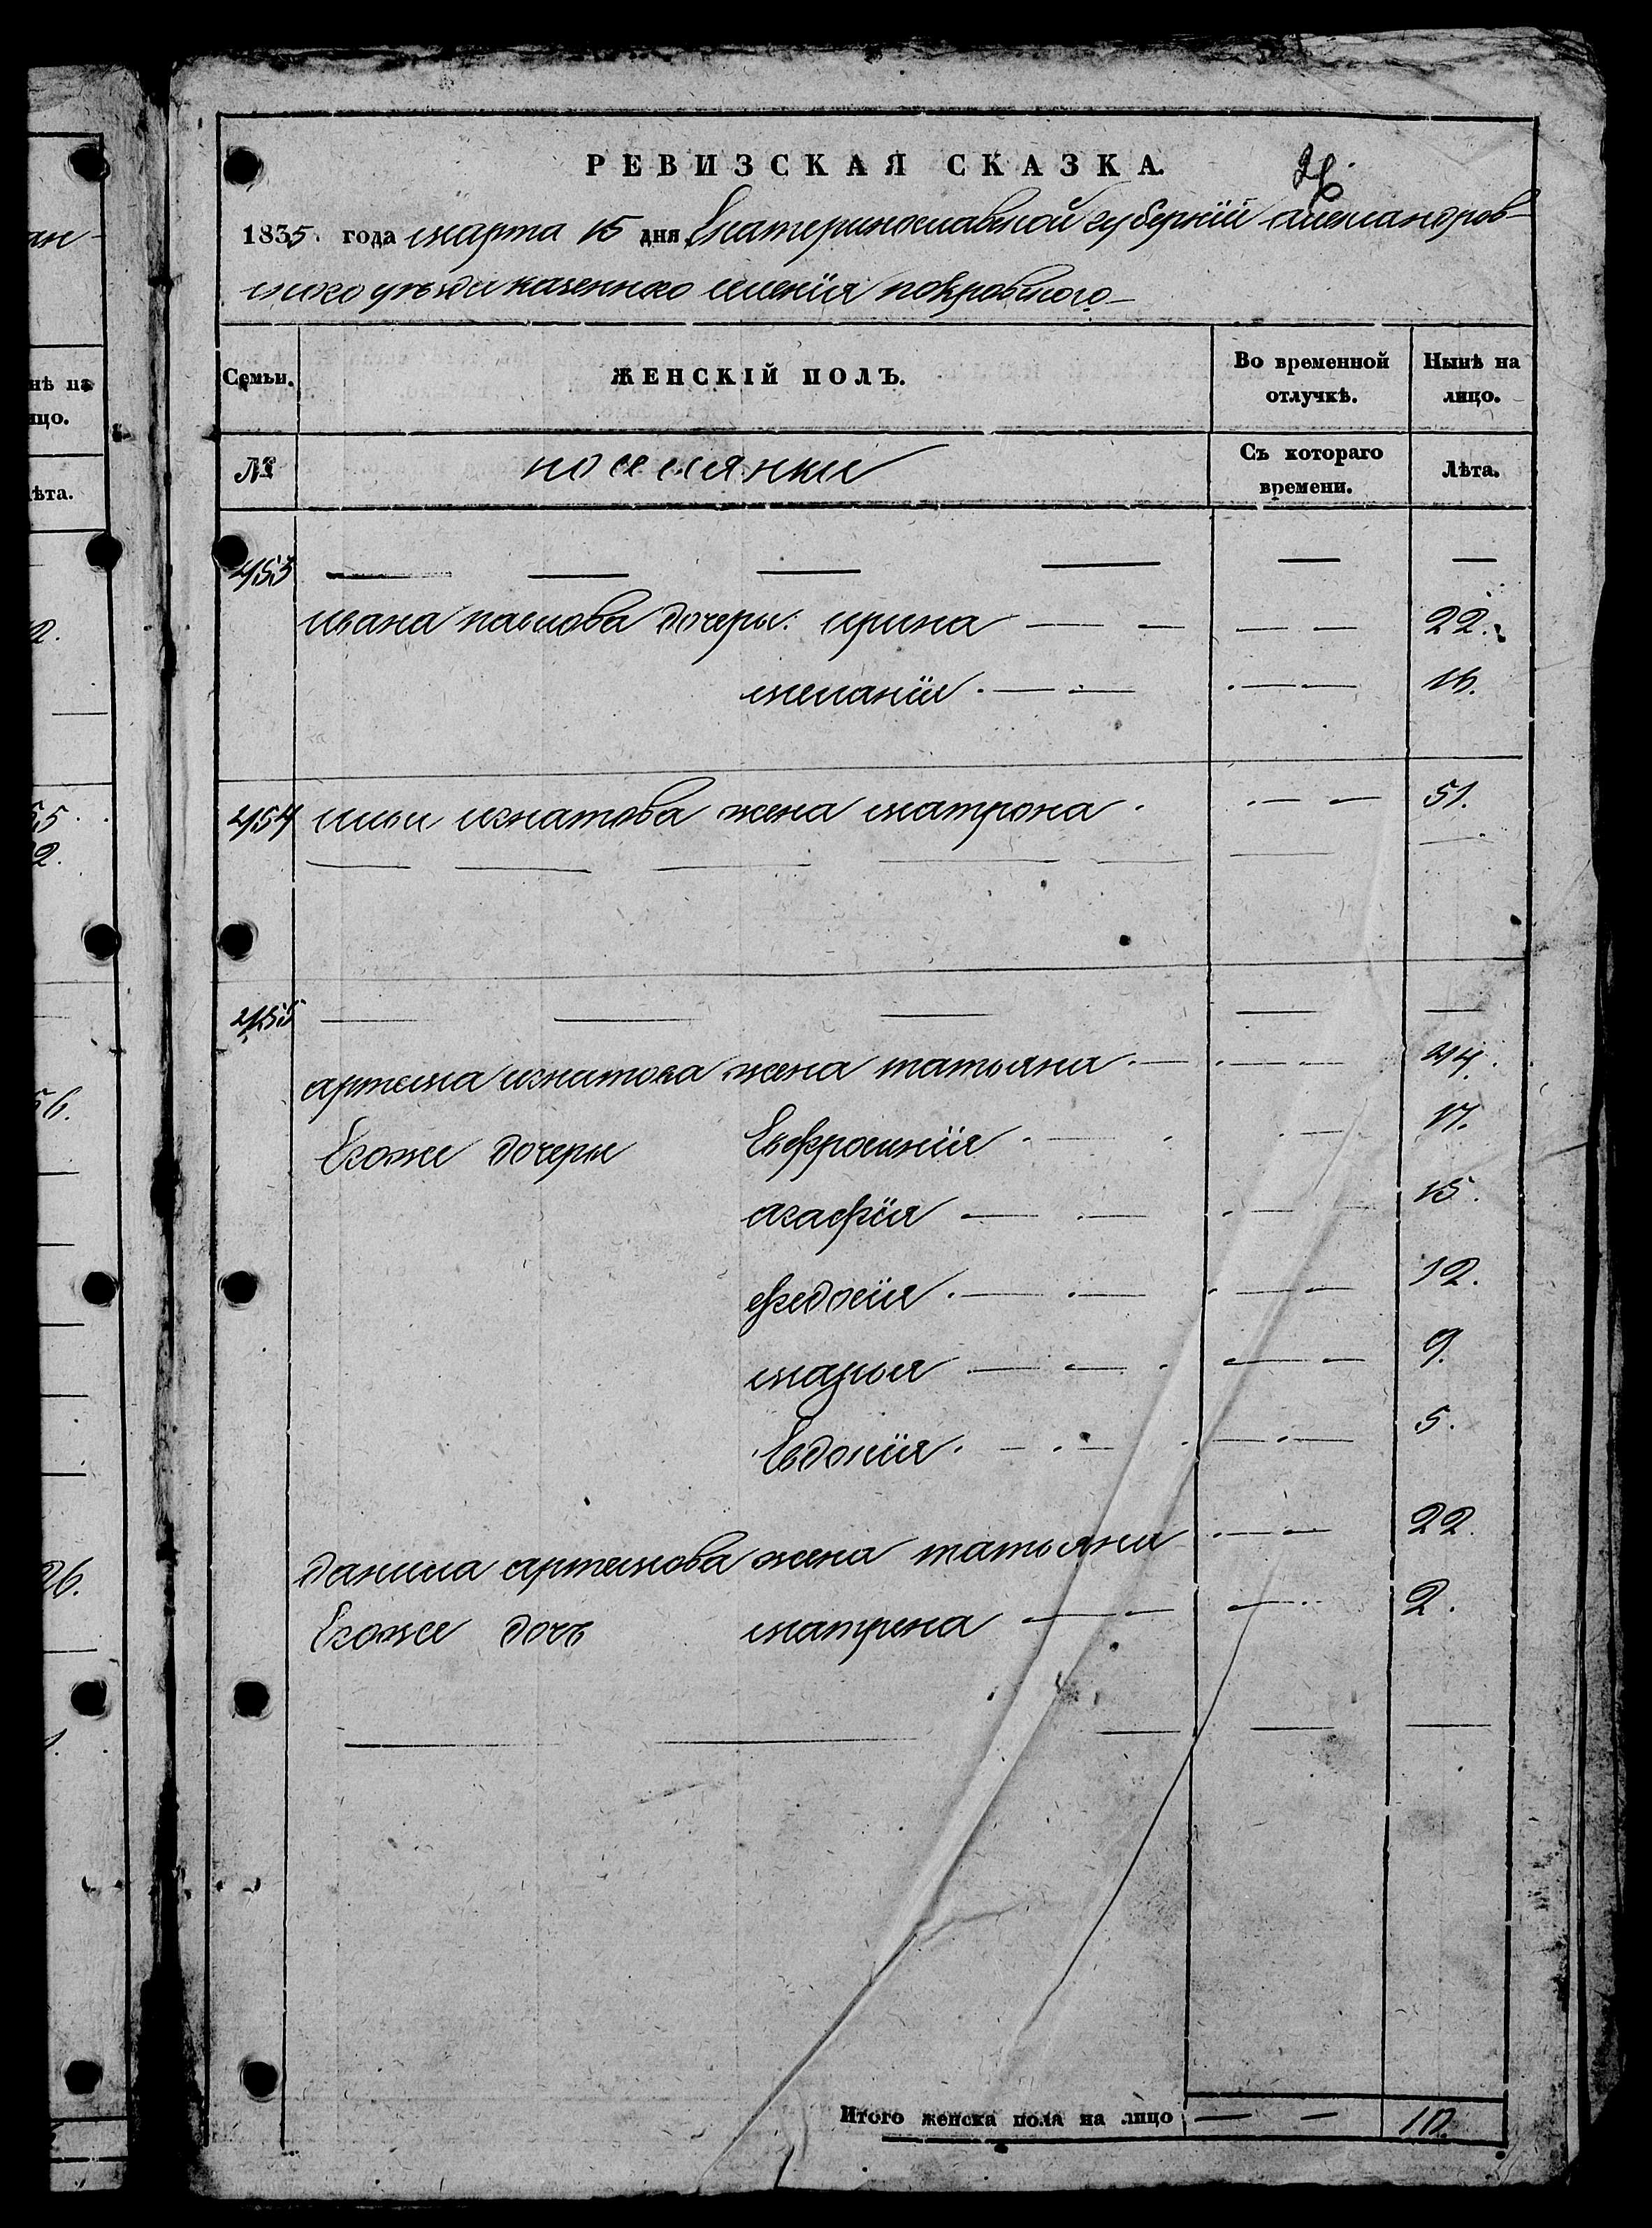 РЕВИЗСКАЯ СКАЗКА.
26.
1835. года марта 15 дня Екатеринославской губернїи александров-
ского уезда казенного селенїя покровского
Семьи. ЖЕНСКІЙ ПОЛЪ. Во временной отлучкѣ. Нынѣ на лицо.
№ поселянки Съ котораго времени. Лѣта.
453 — — — — — —
ивана павлова дочери: ирина — — — — 22.
меланїя — — — — 16.
454 ильи игнатова жена матрона — — 51.
455 — — — — —
артема игнатова жена татьяна — — — 44.
Егоже дочери Евфросинїя — — 17.
агафїя — — — — 15.
федосїя — — — — 12.
марья — — — — 9.
Евдокїя — — — — 5.
данила артемова жена татьяна — — 22.
Егоже дочь матрена — — — 2.
— — — — —
Итого женска пола на лицо — — 10.
ан-
нѣ на
ицо.
ѣта.
2.
55.
2.
56.
26.